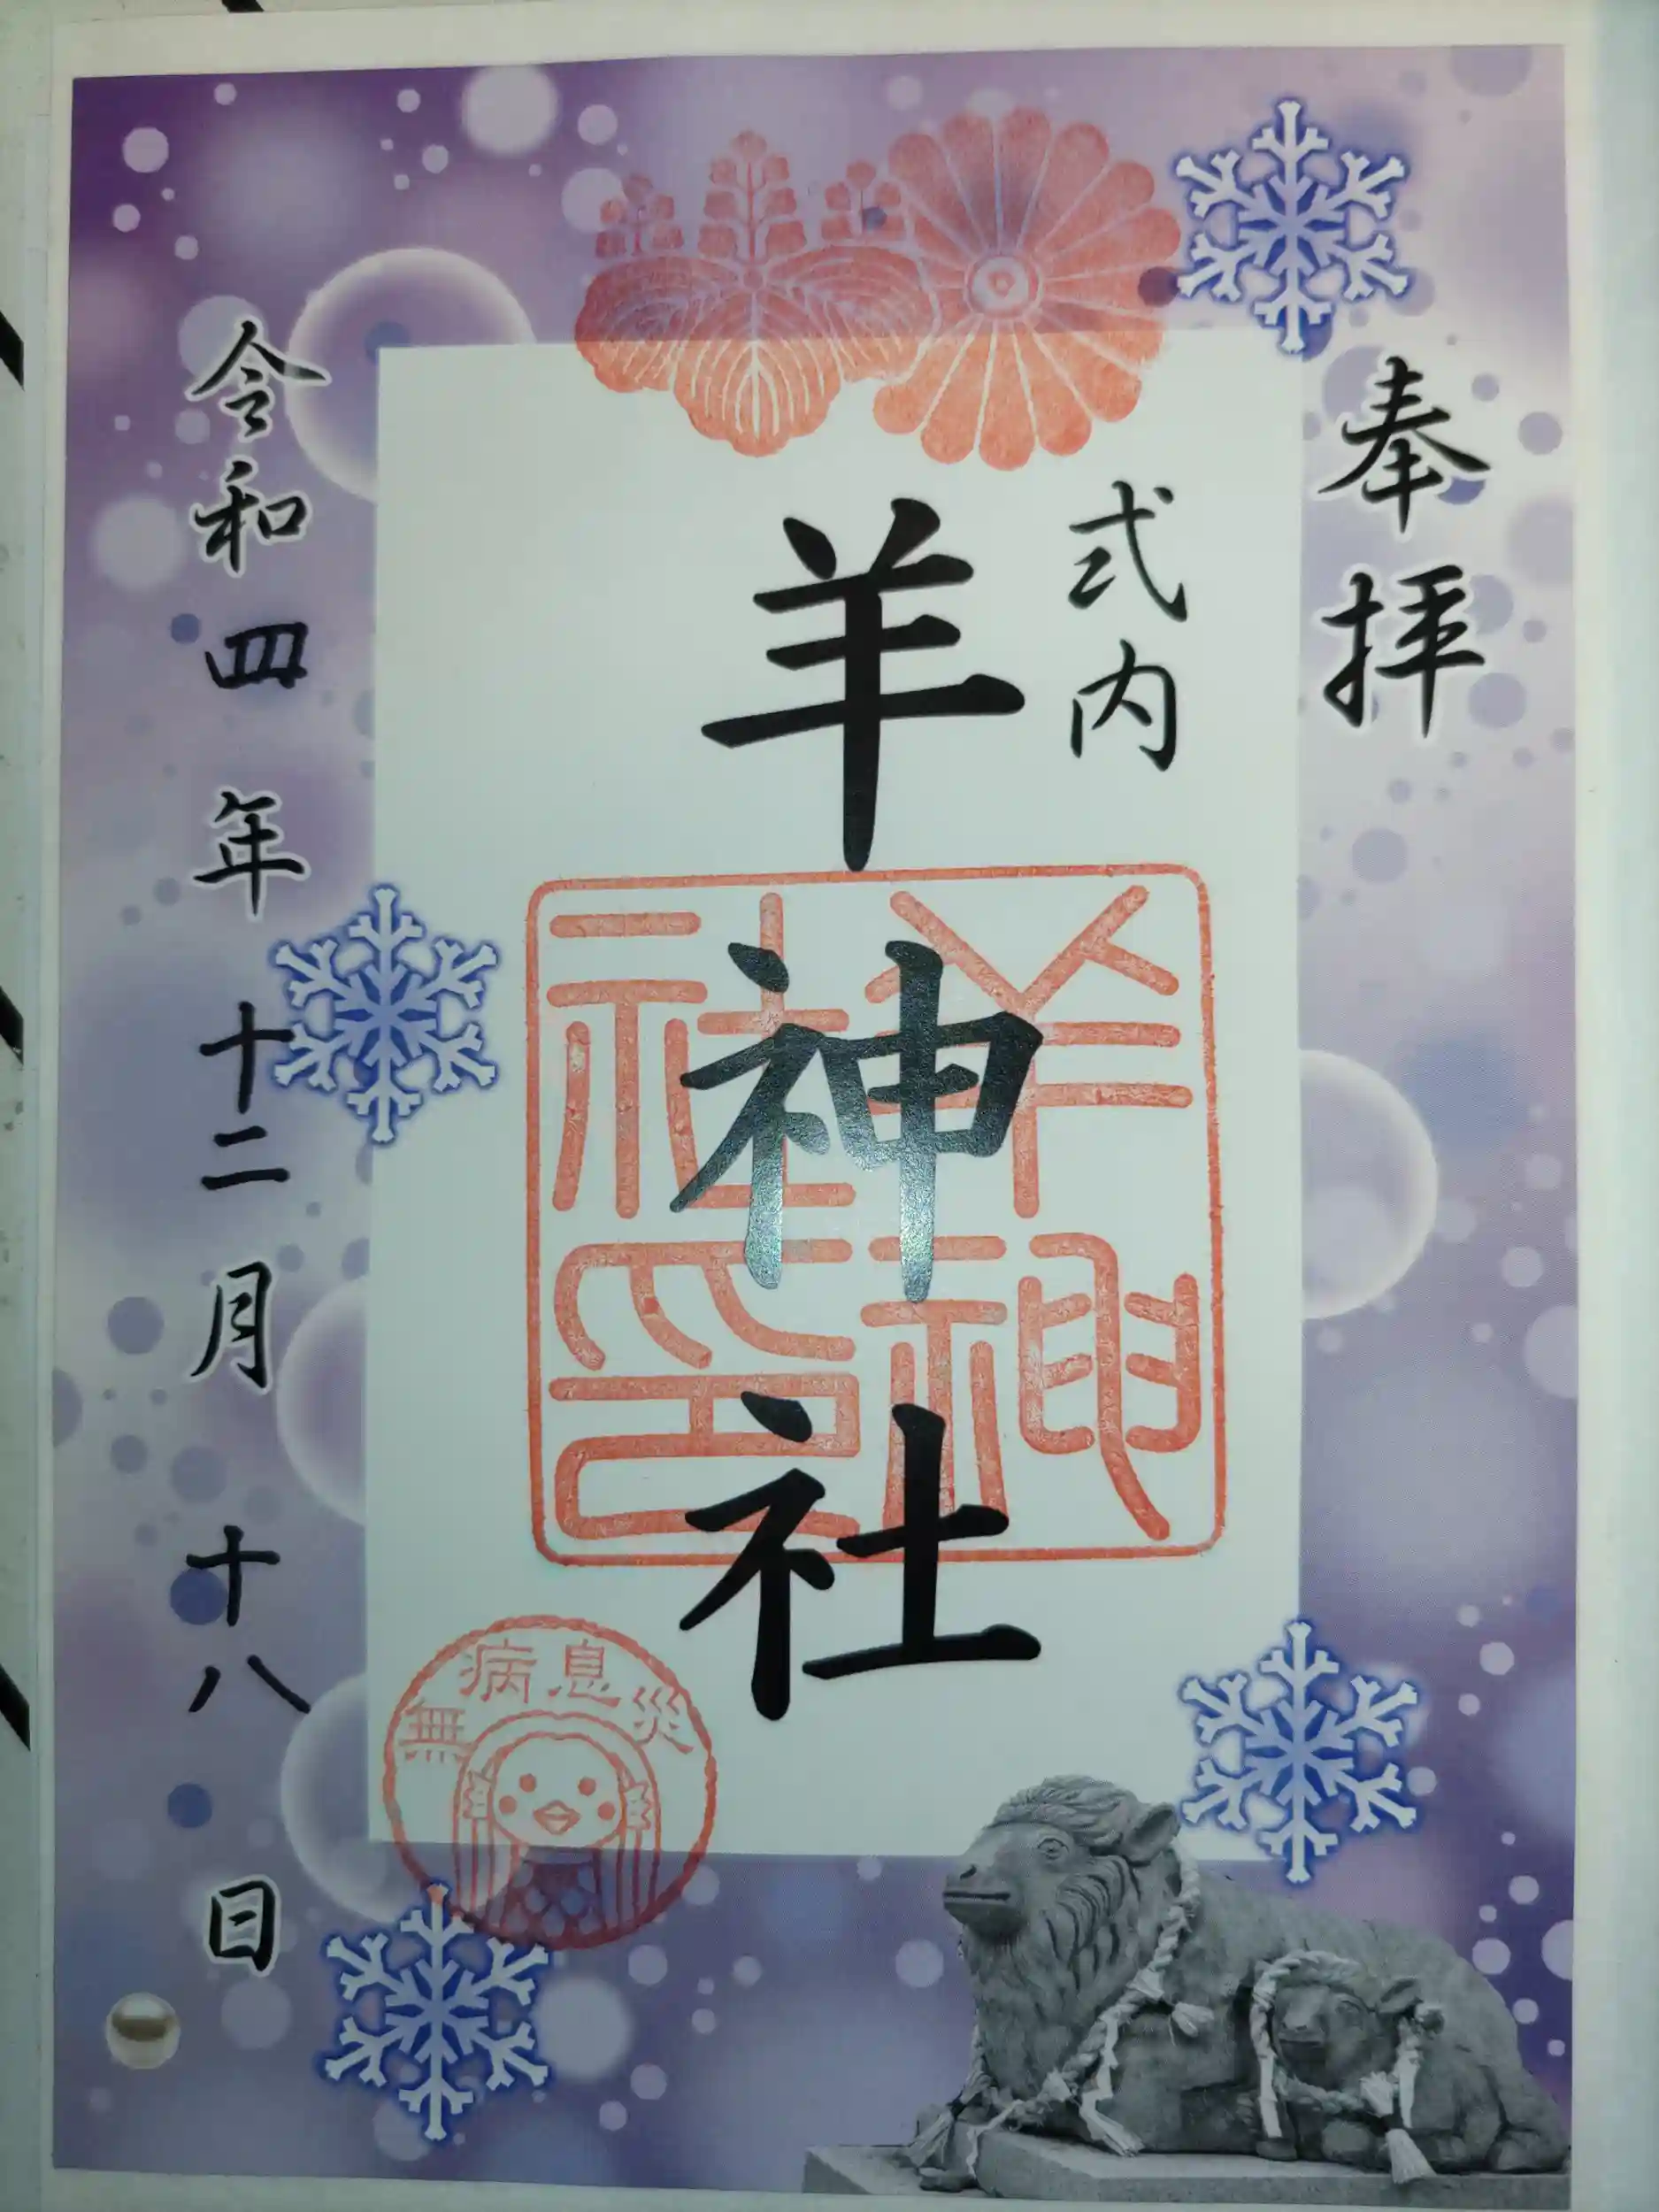 奉拝
式内
羊神社
羊神社印
無病息災
令和四年十二月十八日